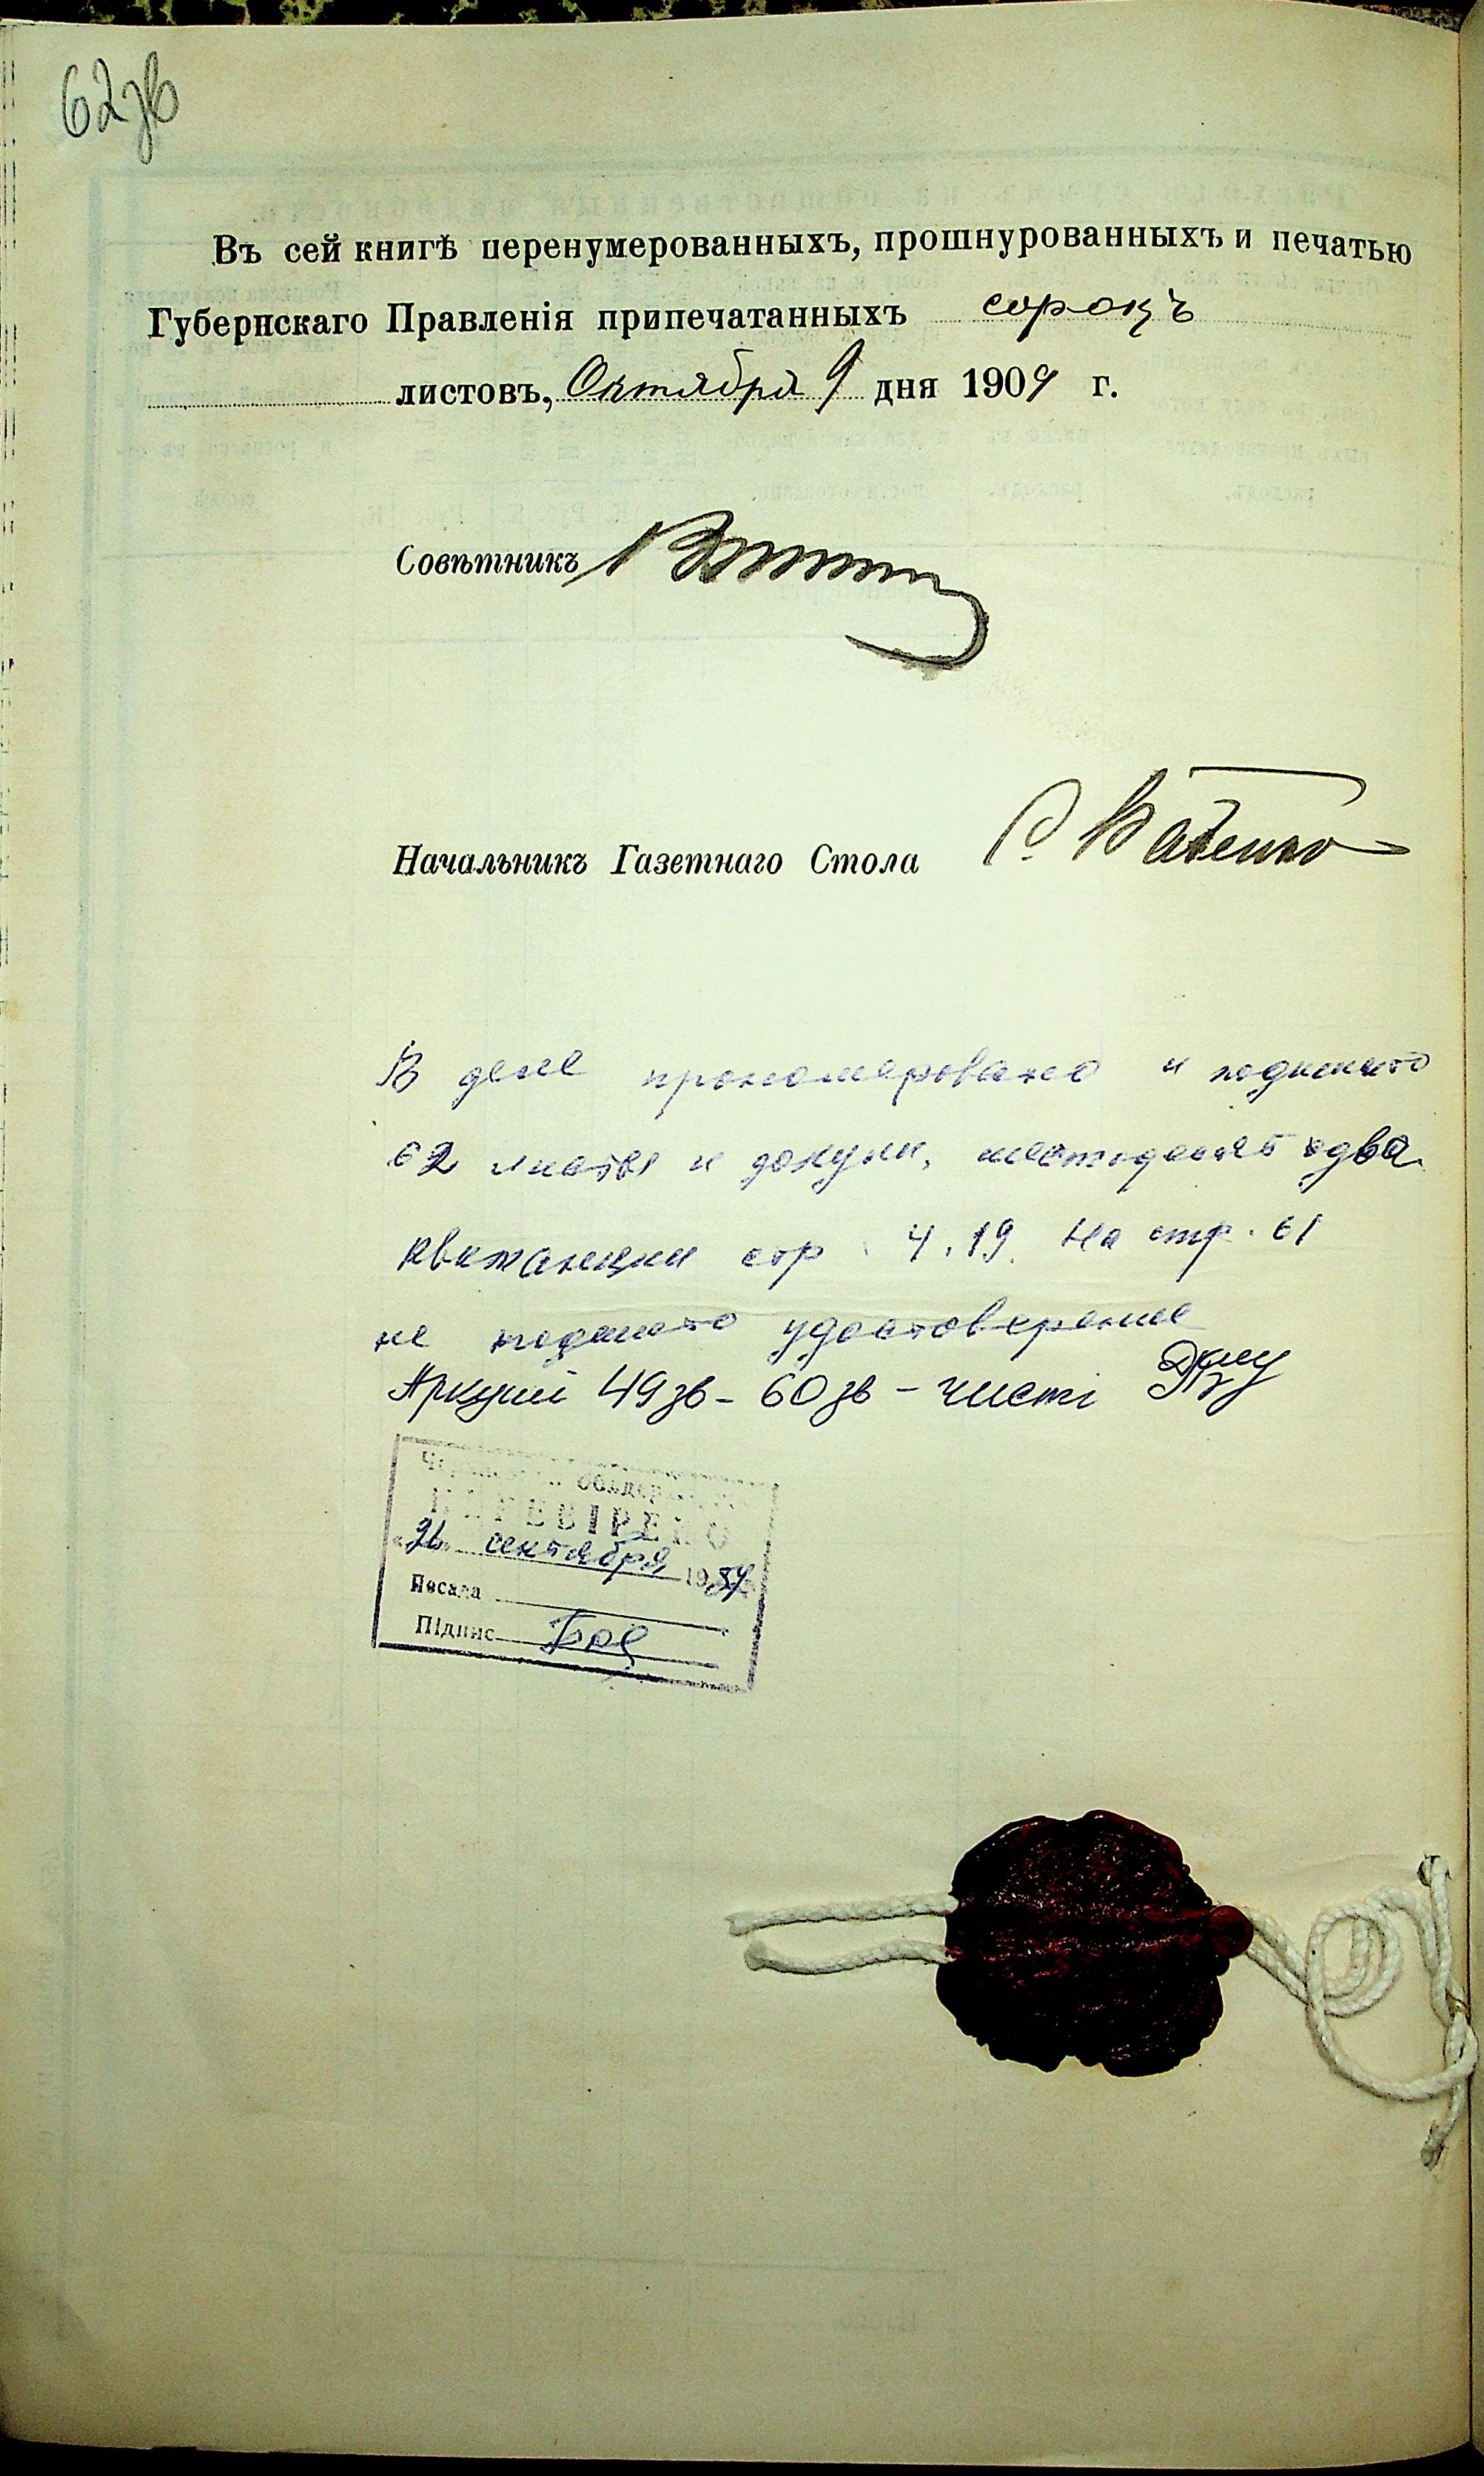 62зв
Въ сей книгѣ перенумерованныхъ, прошнурованныхъ и печатью
Губернскаго Правленія припечатанныхъ сорокъ
листовъ, Октября 9 дня 1909 г.
Совѣтникъ
Начальникъ Газетнаго Стола С. Бабенко
В деле пронумеровано и подшито
62 листа и докум, шестьдесят два
квитанции стр. 4, 19. На стр. 61
не подшито удостоверение
Аркуші 49зв - 60зв - чисті
ПЕРЕВІРЕНО
"26" сентября 1984
Посада
Підпис